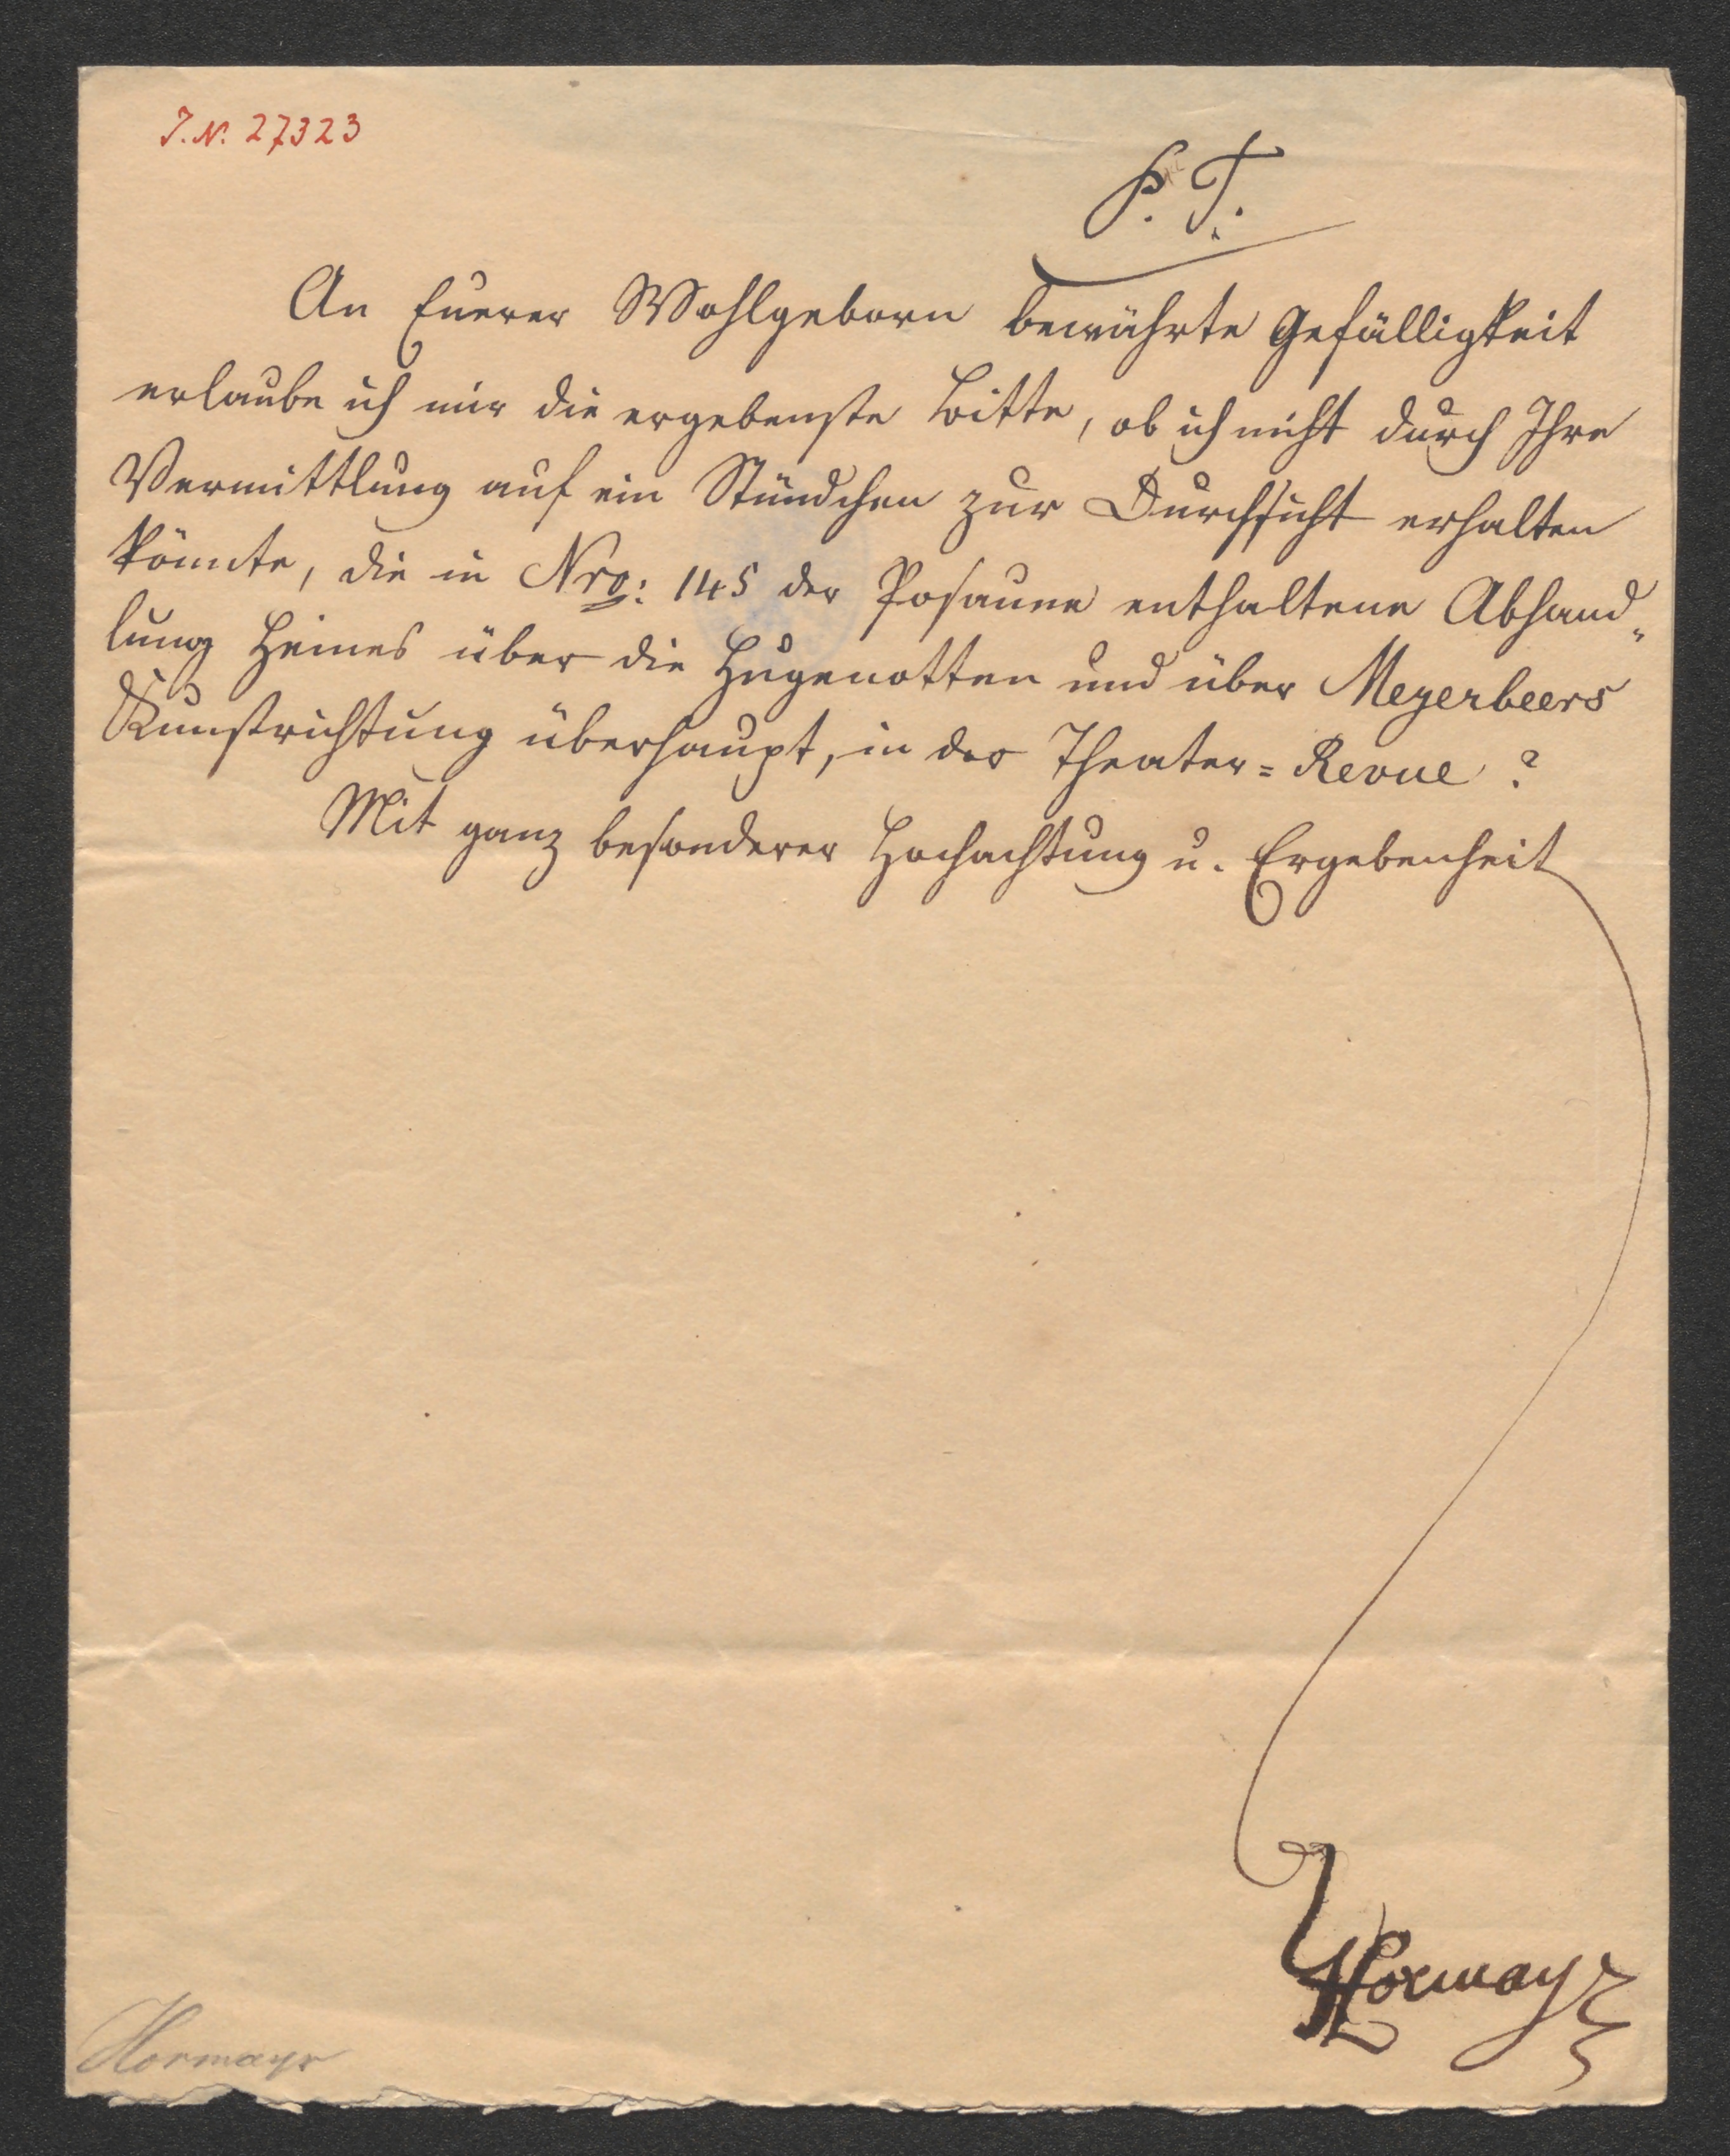 J. N. 27323
P. T.
An Euerer Wohlgeborn bewährte Gefälligkeit
erlaube ich mir die ergebenste Bitte, ob ich nicht durch Ihre
Vermittlung auf ein Stündchen zur Durchsicht erhalten
könnte, die in Nro: 145 der Posaune enthaltene Abhand„
lung Heines über die Hugenotten und über Meyerbeers
Kunstrichtung überhaupt, in der Theater=Revue?
Mit ganz besonderer Hochachtung u. Ergebenheit
Hormayr
Hormayr